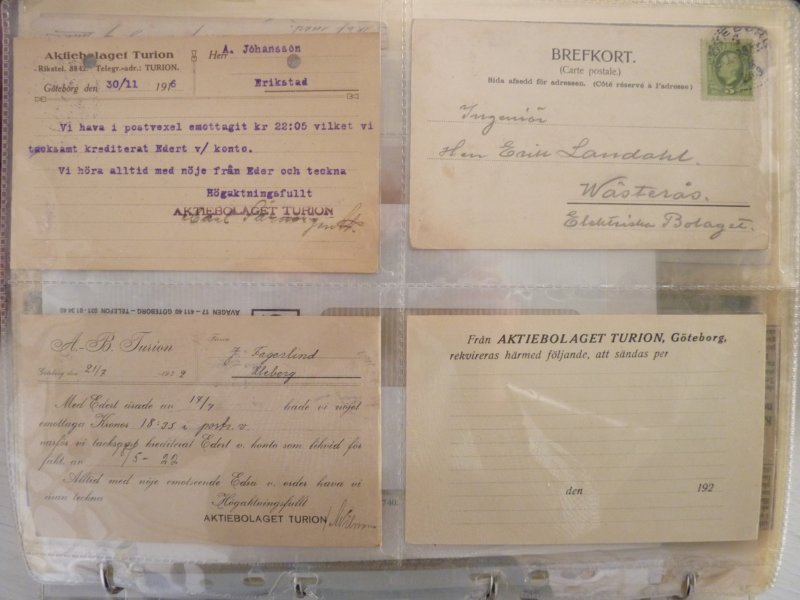 Aktiebolaget Turion
Rikstel. 8842. Telegr.-adr.: TURION.
Göteborg den 30/11 1916
Herr A. Jöhansson
Erikstad
Vi hava i postvexel emottagit kr 22:05 vilket vi
tacksamt krediterat Edert v/ konto.
Vi höra alltid med nöje från Eder och teckna
Högaktningsfullt
AKTIEBOLAGET TURION
BREFKORT.
(Carte postale.)
Bida afsedd för adressen. (Côté réservé à l'adresse.)
5
Ingeniör
Herr Erik Landahl.
Wästerås.
Elektriska Bolaget.
ÄVÄGEN 17 — 411 40 GÖTEBORG — TELEFON 031
A.-B. Turion
Göteborg den 21/7 1922
Firma
J. Fagerlind
Uleborg
Med Edert ärade av 17/7 hade vi nöjet
emottaga Kronor 18:35 i postv.
varför vi tacksamt krediterat Edert v. konto som likvid för
fakt. av 9/5-22
Alltid med nöje emotseende Edra v. order hava vi
äran teckna
Högaktningsfullt
AKTIEBOLAGET TURION
Från AKTIEBOLAGET TURION, Göteborg,
rekvireras härmed följande, att sändas per
den 192
740